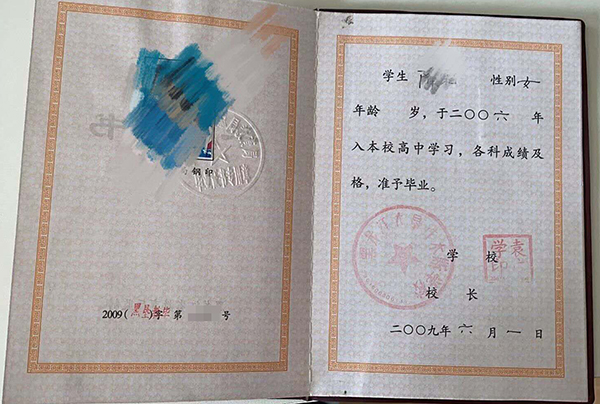 书
钢印
2009(黑垦)字 第 号
学生 性别女
年龄 岁，于二〇〇六年
入本校高中学习，各科成绩及
格，准予毕业。
学 校
校 长
袁
学
印
二〇〇九年六月一日